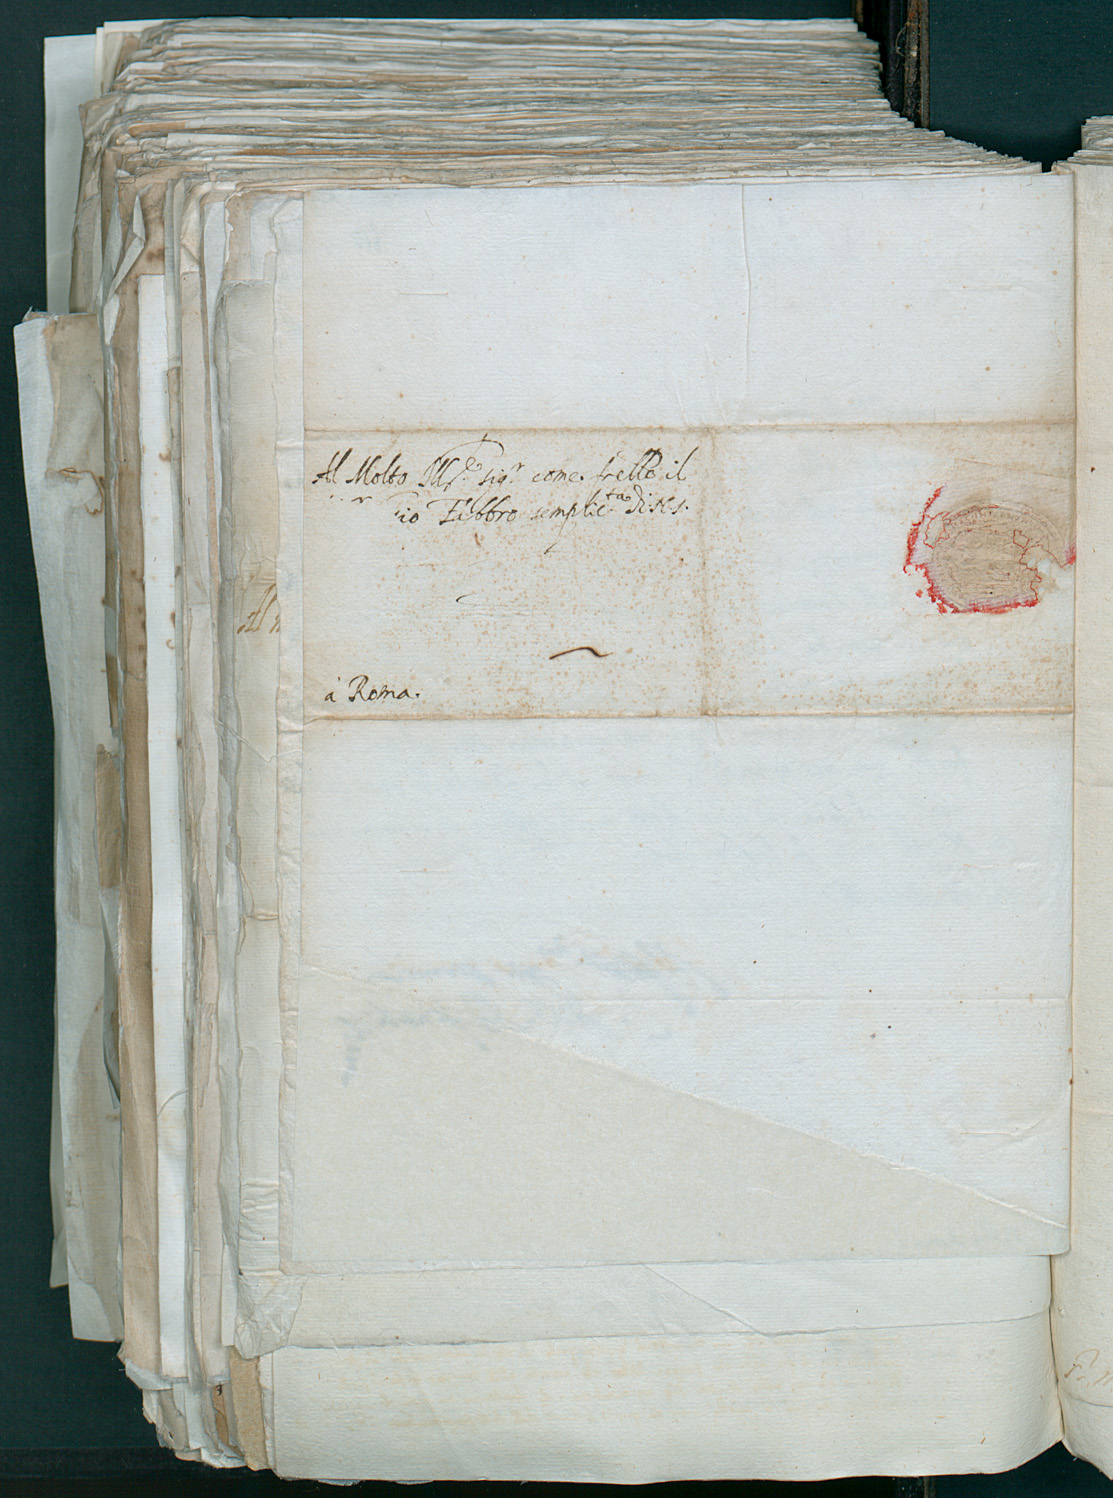 Al Molto Ill.re sig.r come frello il
sig.r Gio Fabbro semplic.ta di ses.
à Roma.